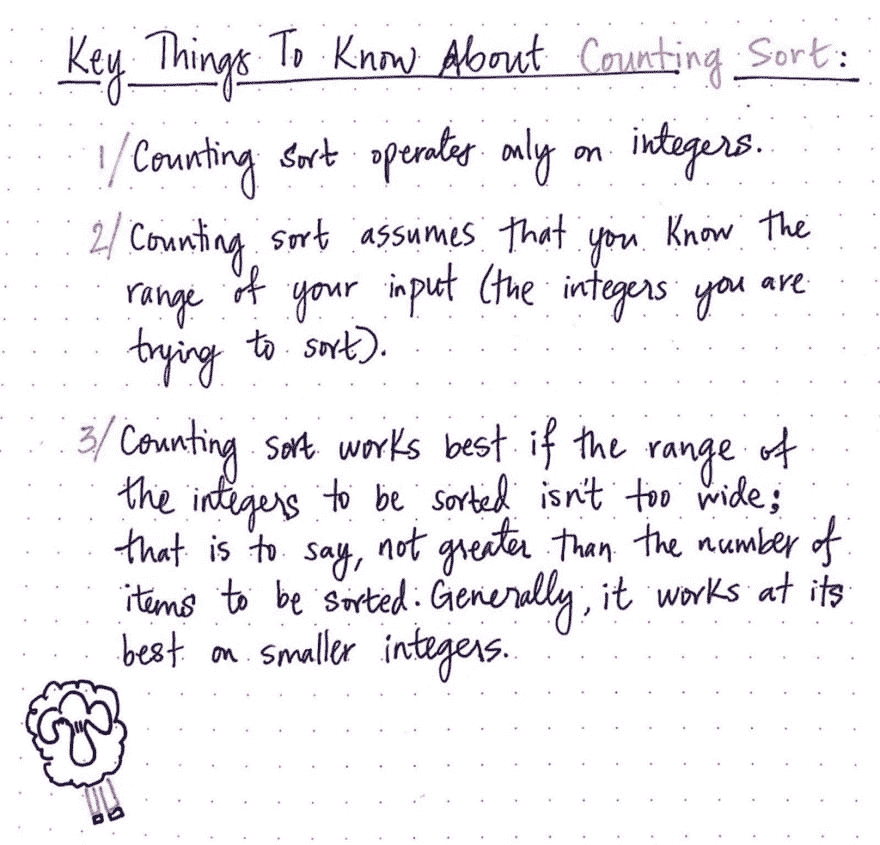 Key Things To Know About Counting Sort:
1/ Counting sort operates only on integers.
2/ Counting sort assumes that you know the
range of your input (the integers you are
trying to sort).
3/ Counting sort works best if the range of
the integers to be sorted isn't too wide;
that is to say, not greater than the number of
items to be sorted. Generally, it works at its
best on smaller integers.